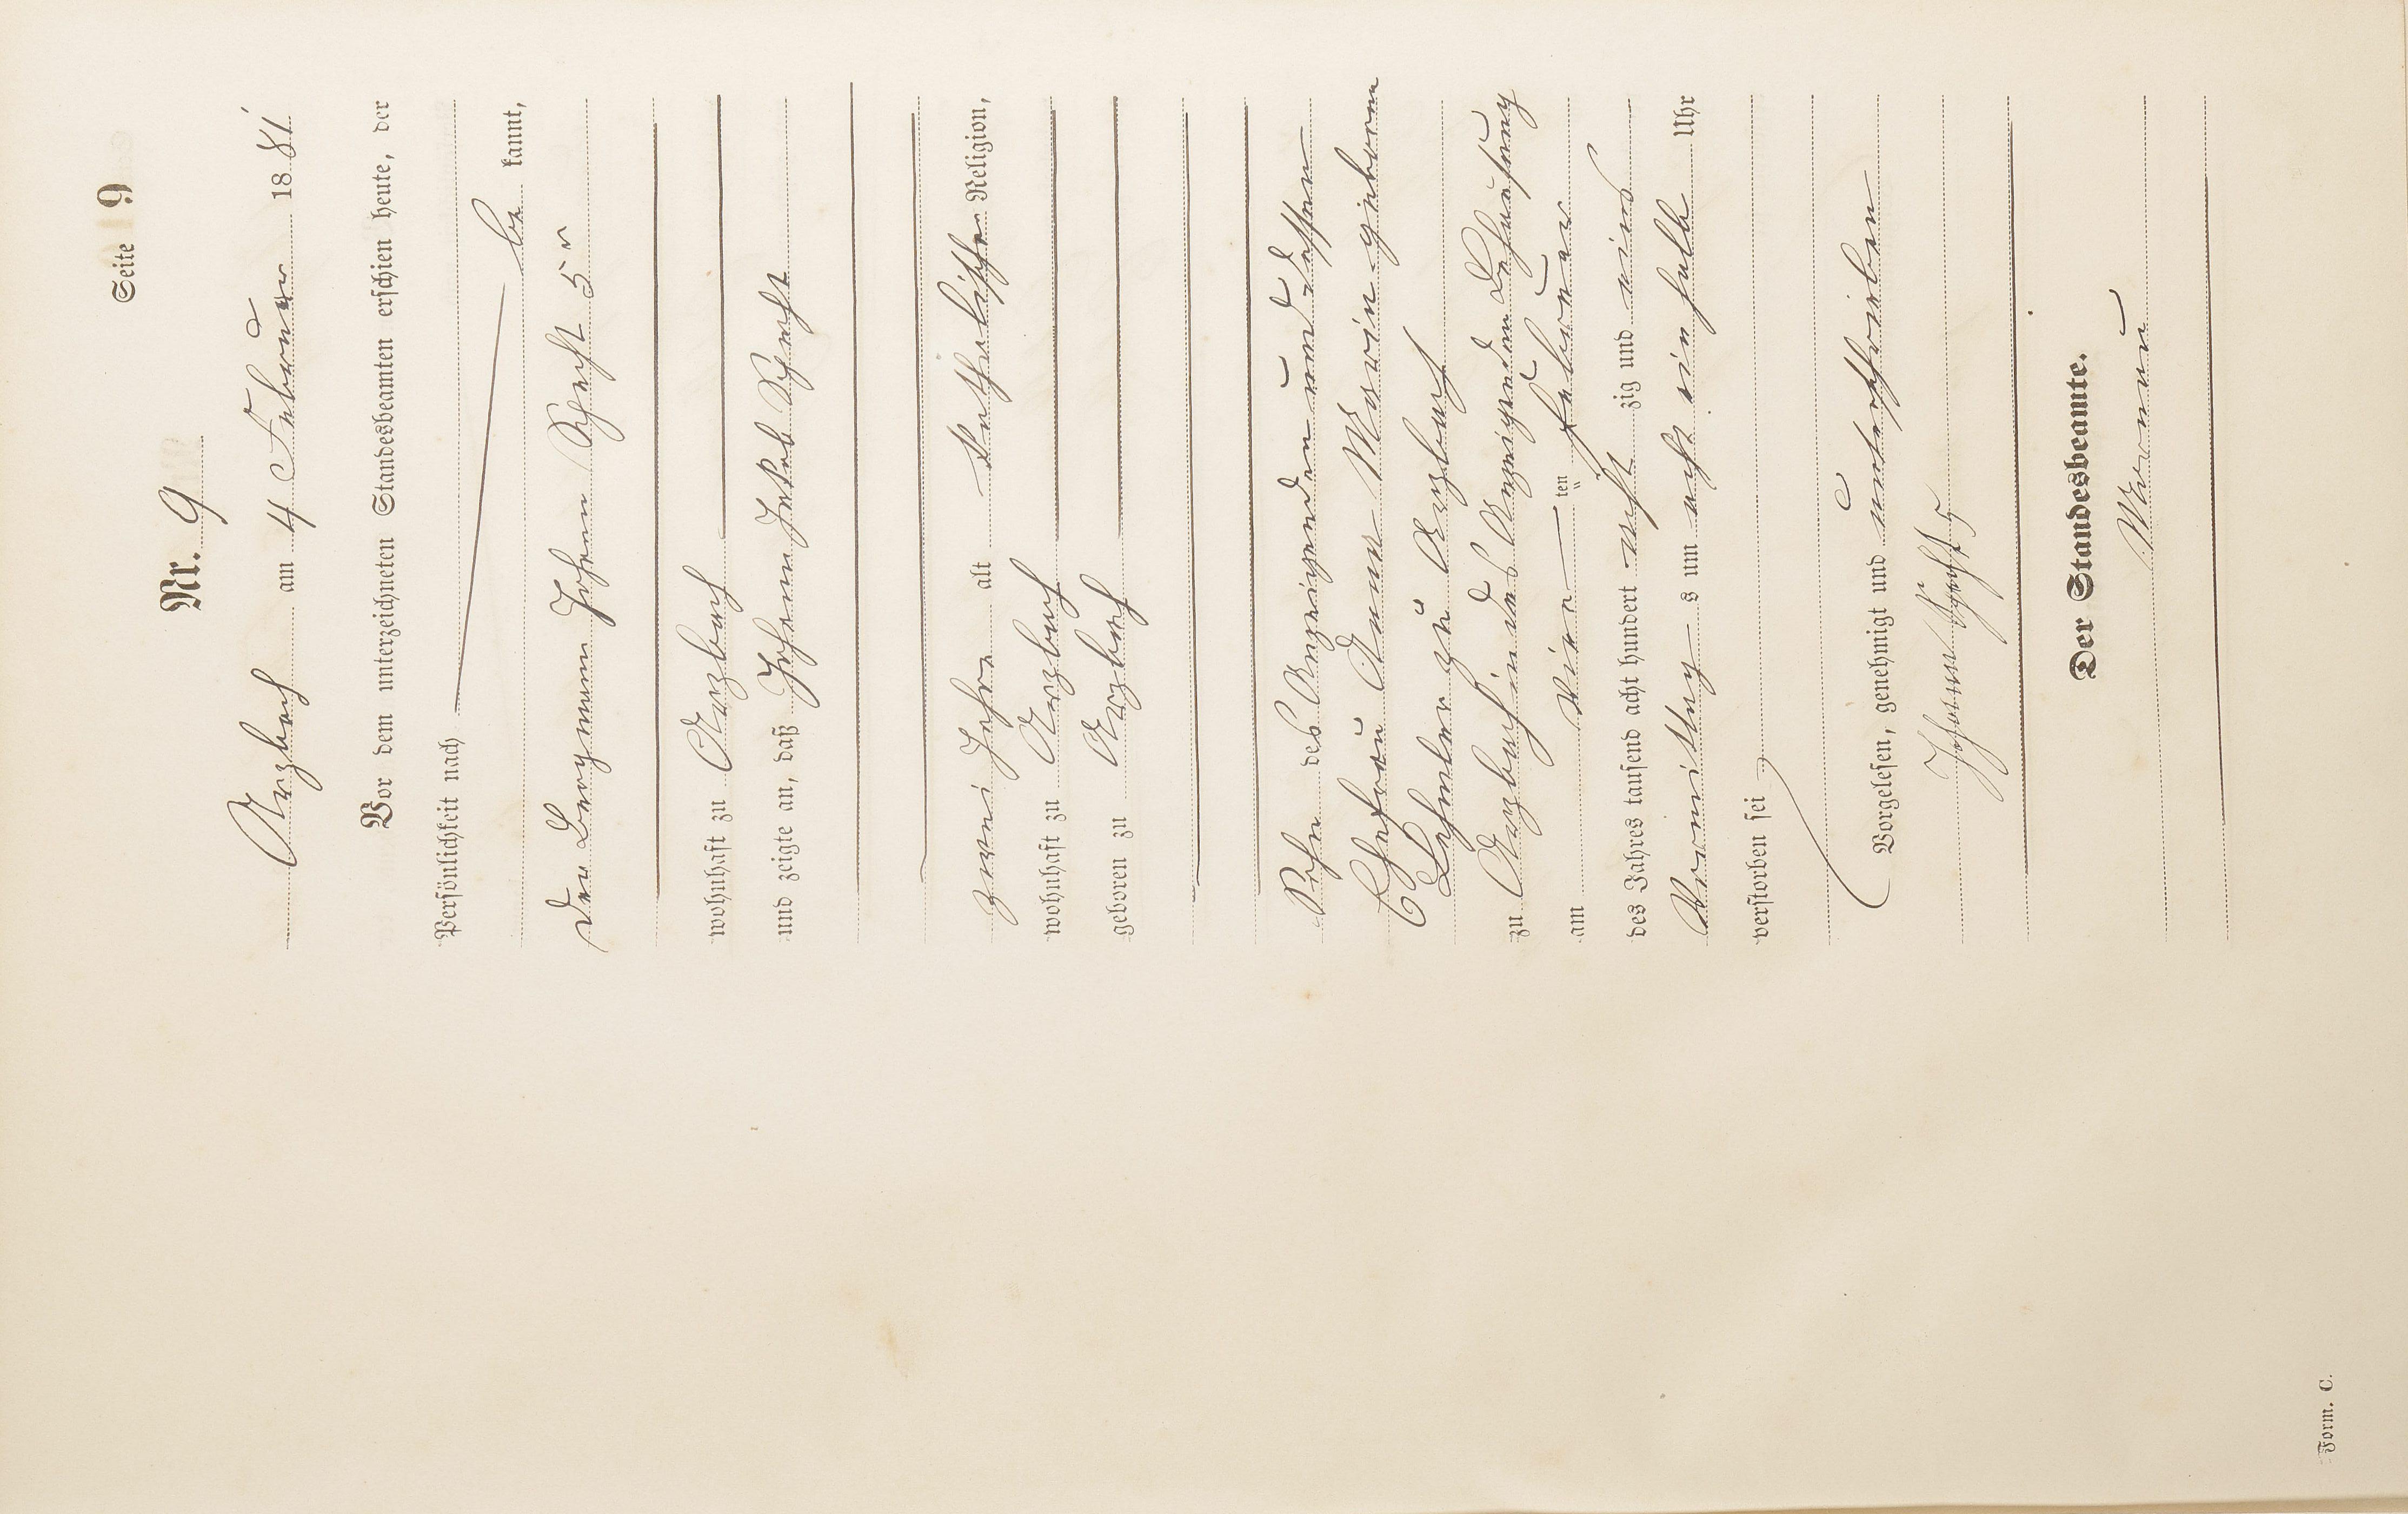 Seite 9
Nr. 9
Arzbach am 4 Februar 1881
Vor dem unterzeichneten Standesbeamten erschien heute, der
Persönlichkeit nach
be kannt,
der Bergmann Johann Specht 5r
wohnhaft zu Arzbach
und zeigte an, daß Johann Jakob Specht
zwei Jahre alt katholischer Religion,
wohnhaft zu Arzbach
geboren zu Arzbach
Sohn des Anzeigenden und dessen
Ehefrau Anna Maria geboren
zu Arzbach
zu Arzbach in des Anzeigenden Behausung
am vier ten Februar
des Jahres tausend acht hundert acht zig und eins
Vormittag s um acht ein halb Uhr
verstorben sei
Vorgelesen, genehmigt und unterschrieben
Johann Specht 5
Der Standesbeamte.
Form. C.